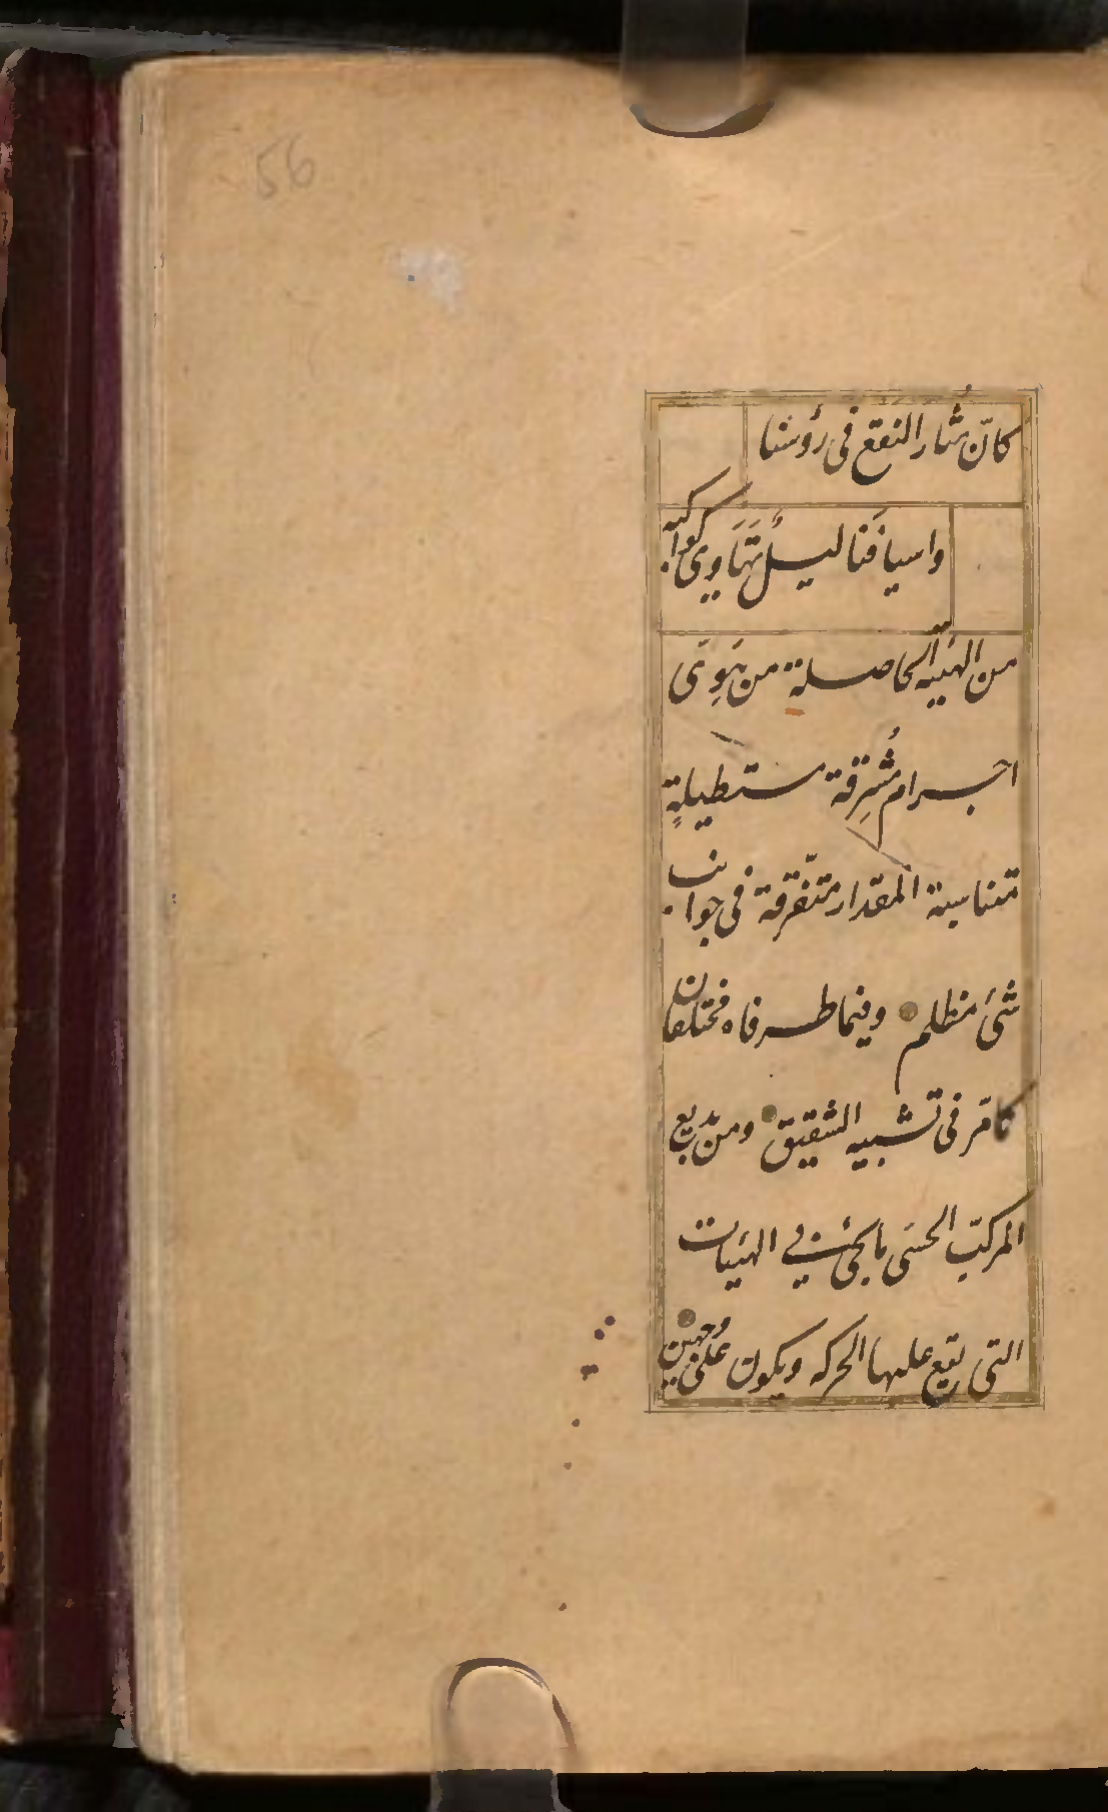 56
كانّ مُثار النقع فى رؤسنا
واسيافَنا ليلٌ تَهَاوى كواكبه
من الهيئة الحاصلة من هَوِىّ
اجرام مُشرِقة مستطيلةٍ
متناسبة المقدار متفرّقة فى جوانب
شىء مظلم وفيما طرفاه مختلفان
كامر فى تشبيه الشقيق ومن بديع
المركّب الحسّى ما يجئ فى الهيئات
التى يقع عليها الحركه ويكون على وجهين